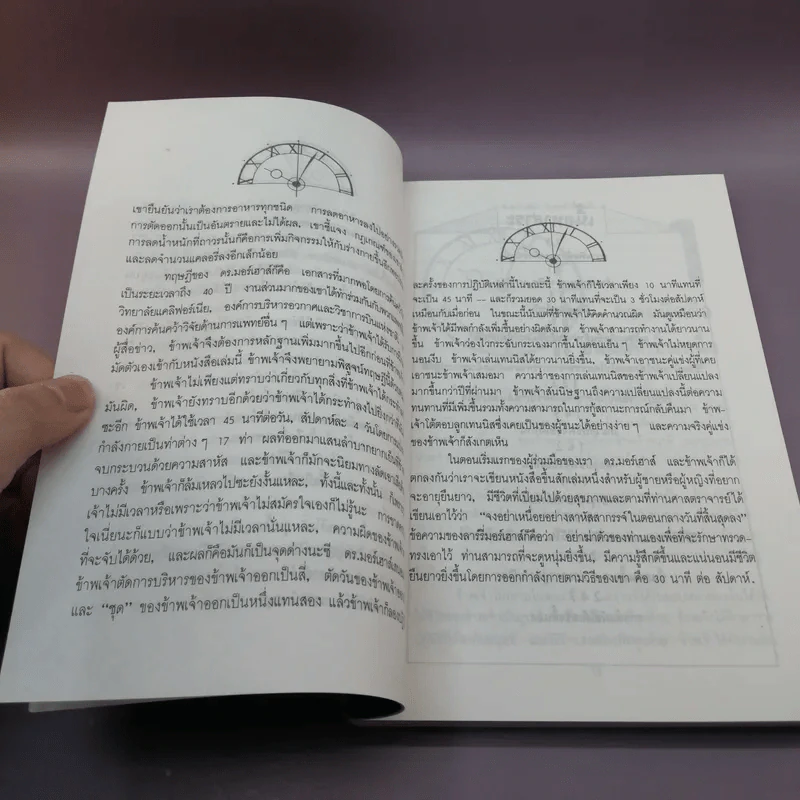 เขายืนยันว่าเราต้องการอาหารทุกชนิด การลดอาหารลงไปอย่าง
การตัดออกนั้นเป็นอันตรายและไม่ได้ผล, เขาชี้แจง กฎเกณฑ์ของ
การลดน้ำหนักที่ถาวรนั้นก็คือการเพิ่มกิจกรรมให้กับร่างกายขึ้นอีก
และลดจำนวนแคลอรี่ลงอีกเล็กน้อย
ทฤษฎีของ ดร.มอร์เฮาส์ก็คือ เอกสารที่มากพอโดยการค้นคว้า
เป็นระยะเวลาถึง 40 ปี งานส่วนมากของเขาได้ทำร่วมกันกับ
วิทยาลัยแคลิฟอร์เนีย, องค์การบริหารอวกาศและวิชาการบินแห่งชาติ,
องค์การค้นคว้าวิจัยด้านการแพทย์อื่น ๆ แต่เพราะว่าข้าพเจ้าได้
ผู้สื่อข่าว, ข้าพเจ้าจึงต้องการหลักฐานเพิ่มมากขึ้นไปอีกก่อนที่ข้าพเจ้า
มัดตัวเองเข้ากับหนังสือเล่มนี้ ข้าพเจ้าจึงพยายามพิสูจน์ทฤษฎีนี้ด้วย
ข้าพเจ้าไม่เพียงแต่ทราบว่าเกี่ยวกับทุกสิ่งที่ข้าพเจ้าได้กระทำ
มันผิด, ข้าพเจ้ายังทราบอีกด้วยว่าข้าพเจ้าได้กระทำลงไปยิ่งกว่า
ซะอีก ข้าพเจ้าได้ใช้เวลา 45 นาทีต่อวัน, สัปดาห์ละ 4 วันโดยการ
กำลังกายเป็นท่าต่าง ๆ 17 ท่า ผลที่ออกมาแสนลำบากยากเย็น
จบกระบวนด้วยความสาหัส และข้าพเจ้าก็มักจะนิยมทางลัดเอา
บางครั้ง ข้าพเจ้าก็ล้มเหลวไปซะยังงั้นแหละ, ทั้งนี้และทั้งนั้น
เจ้าไม่มีเวลาหรือเพราะว่าข้าพเจ้าไม่สมัครใจเองก็ไม่รู้นะ การขาด
ใจเนี่ยนะก็แบบว่าข้าพเจ้าไม่มีเวลานั่นแหละ, ความผิดของข้าพเจ้า
ที่จะจับได้ด้วย, และผลก็คือมันก็เป็นจุดด่างนะซี ดร.มอร์เฮาส์
ข้าพเจ้าตัดการบริหารของข้าพเจ้าออกเป็นสี่, ตัดวันของข้าพเจ้า
และ “ชุด” ของข้าพเจ้าออกเป็นหนึ่งแทนสอง แล้วข้าพเจ้าก็ลอง
ละครั้งของการปฏิบัติเหล่านี้ในขณะนี้ ข้าพเจ้าก็ใช้เวลาเพียง 10 นาทีแทนที่
จะเป็น 45 นาที — และก็รวมยอด 30 นาทีแทนที่จะเป็น 3 ชั่วโมงต่อสัปดาห์
เหมือนกับเมื่อก่อน ในขณะนี้นับแต่ที่ข้าพเจ้าได้คิดคำนวณผิด มันดูเหมือนว่า
ข้าพเจ้าได้มีพลกำลังเพิ่มขึ้นอย่างผิดสังเกต ข้าพเจ้าสามารถทำงานได้ยาวนาน
ขึ้น ข้าพเจ้าว่องไวกระฉับกระเฉงมากขึ้นในตอนเย็น ๆ ข้าพเจ้าไม่หยุดการ
นอนงีบ ข้าพเจ้าเล่นเทนนิสได้ยาวนานยิ่งขึ้น, ข้าพเจ้าเอาชนะคู่แข่งผู้ที่เคย
เอาชนะข้าพเจ้าเสมอมา ความช้าของการเล่นเทนนิสของข้าพเจ้าเปลี่ยนแปลง
มากขึ้นกว่าปีที่ผ่านมา ข้าพเจ้าสันนิษฐานถึงความเปลี่ยนแปลงนี้ต่อความ
ทนทานที่มีเพิ่มขึ้นรวมทั้งความสามารถในการกู้สถานะการณ์กลับคืนมา ข้าพ-
เจ้าได้ตอบลูกเทนนิสซึ่งเคยเป็นของผู้ชนะได้อย่างง่าย ๆ และความจริงคู่แข่ง
ของข้าพเจ้าก็สังเกตเห็น
ในตอนเริ่มแรกของผู้ร่วมมือของเรา ดร.มอร์เฮาส์ และข้าพเจ้าก็ได้
ตกลงกันว่าเราจะเขียนหนังสือขึ้นสักเล่มหนึ่งสำหรับผู้ชายหรือผู้หญิงที่อยาก
จะอายุยืนยาว, มีชีวิตที่เปี่ยมไปด้วยสุขภาพและตามที่ท่านศาสตราจารย์ได้
เขียนเอาไว้ว่า “จงอย่าเหนื่อยอย่างสาหัสสากรรจ์ในตอนกลางวันที่สิ้นสุดลง”
ข้อความของลารี่มอร์เฮาส์ก็คือว่า อย่าฆ่าตัวของท่านเองเพื่อที่จะรักษาทรวด-
ทรงเอาไว้ ท่านสามารถที่จะดูหนุ่มยิ่งขึ้น, มีความรู้สึกดีขึ้นและแน่นอนมีชีวิต
ยืนยาวยิ่งขึ้นโดยการออกกำลังกายตามวิธีของเขา คือ 30 นาที ต่อ สัปดาห์.